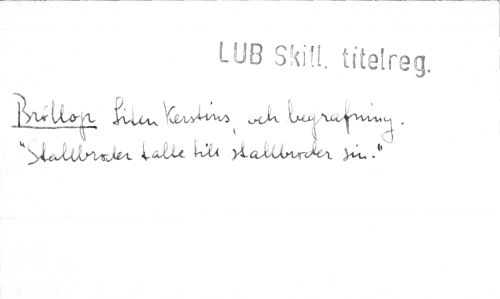 LUB Skill. titelreg.
Bröllop Liten Kerstins, och begrafning.
"Stallbroder talte till stallbroder sin."